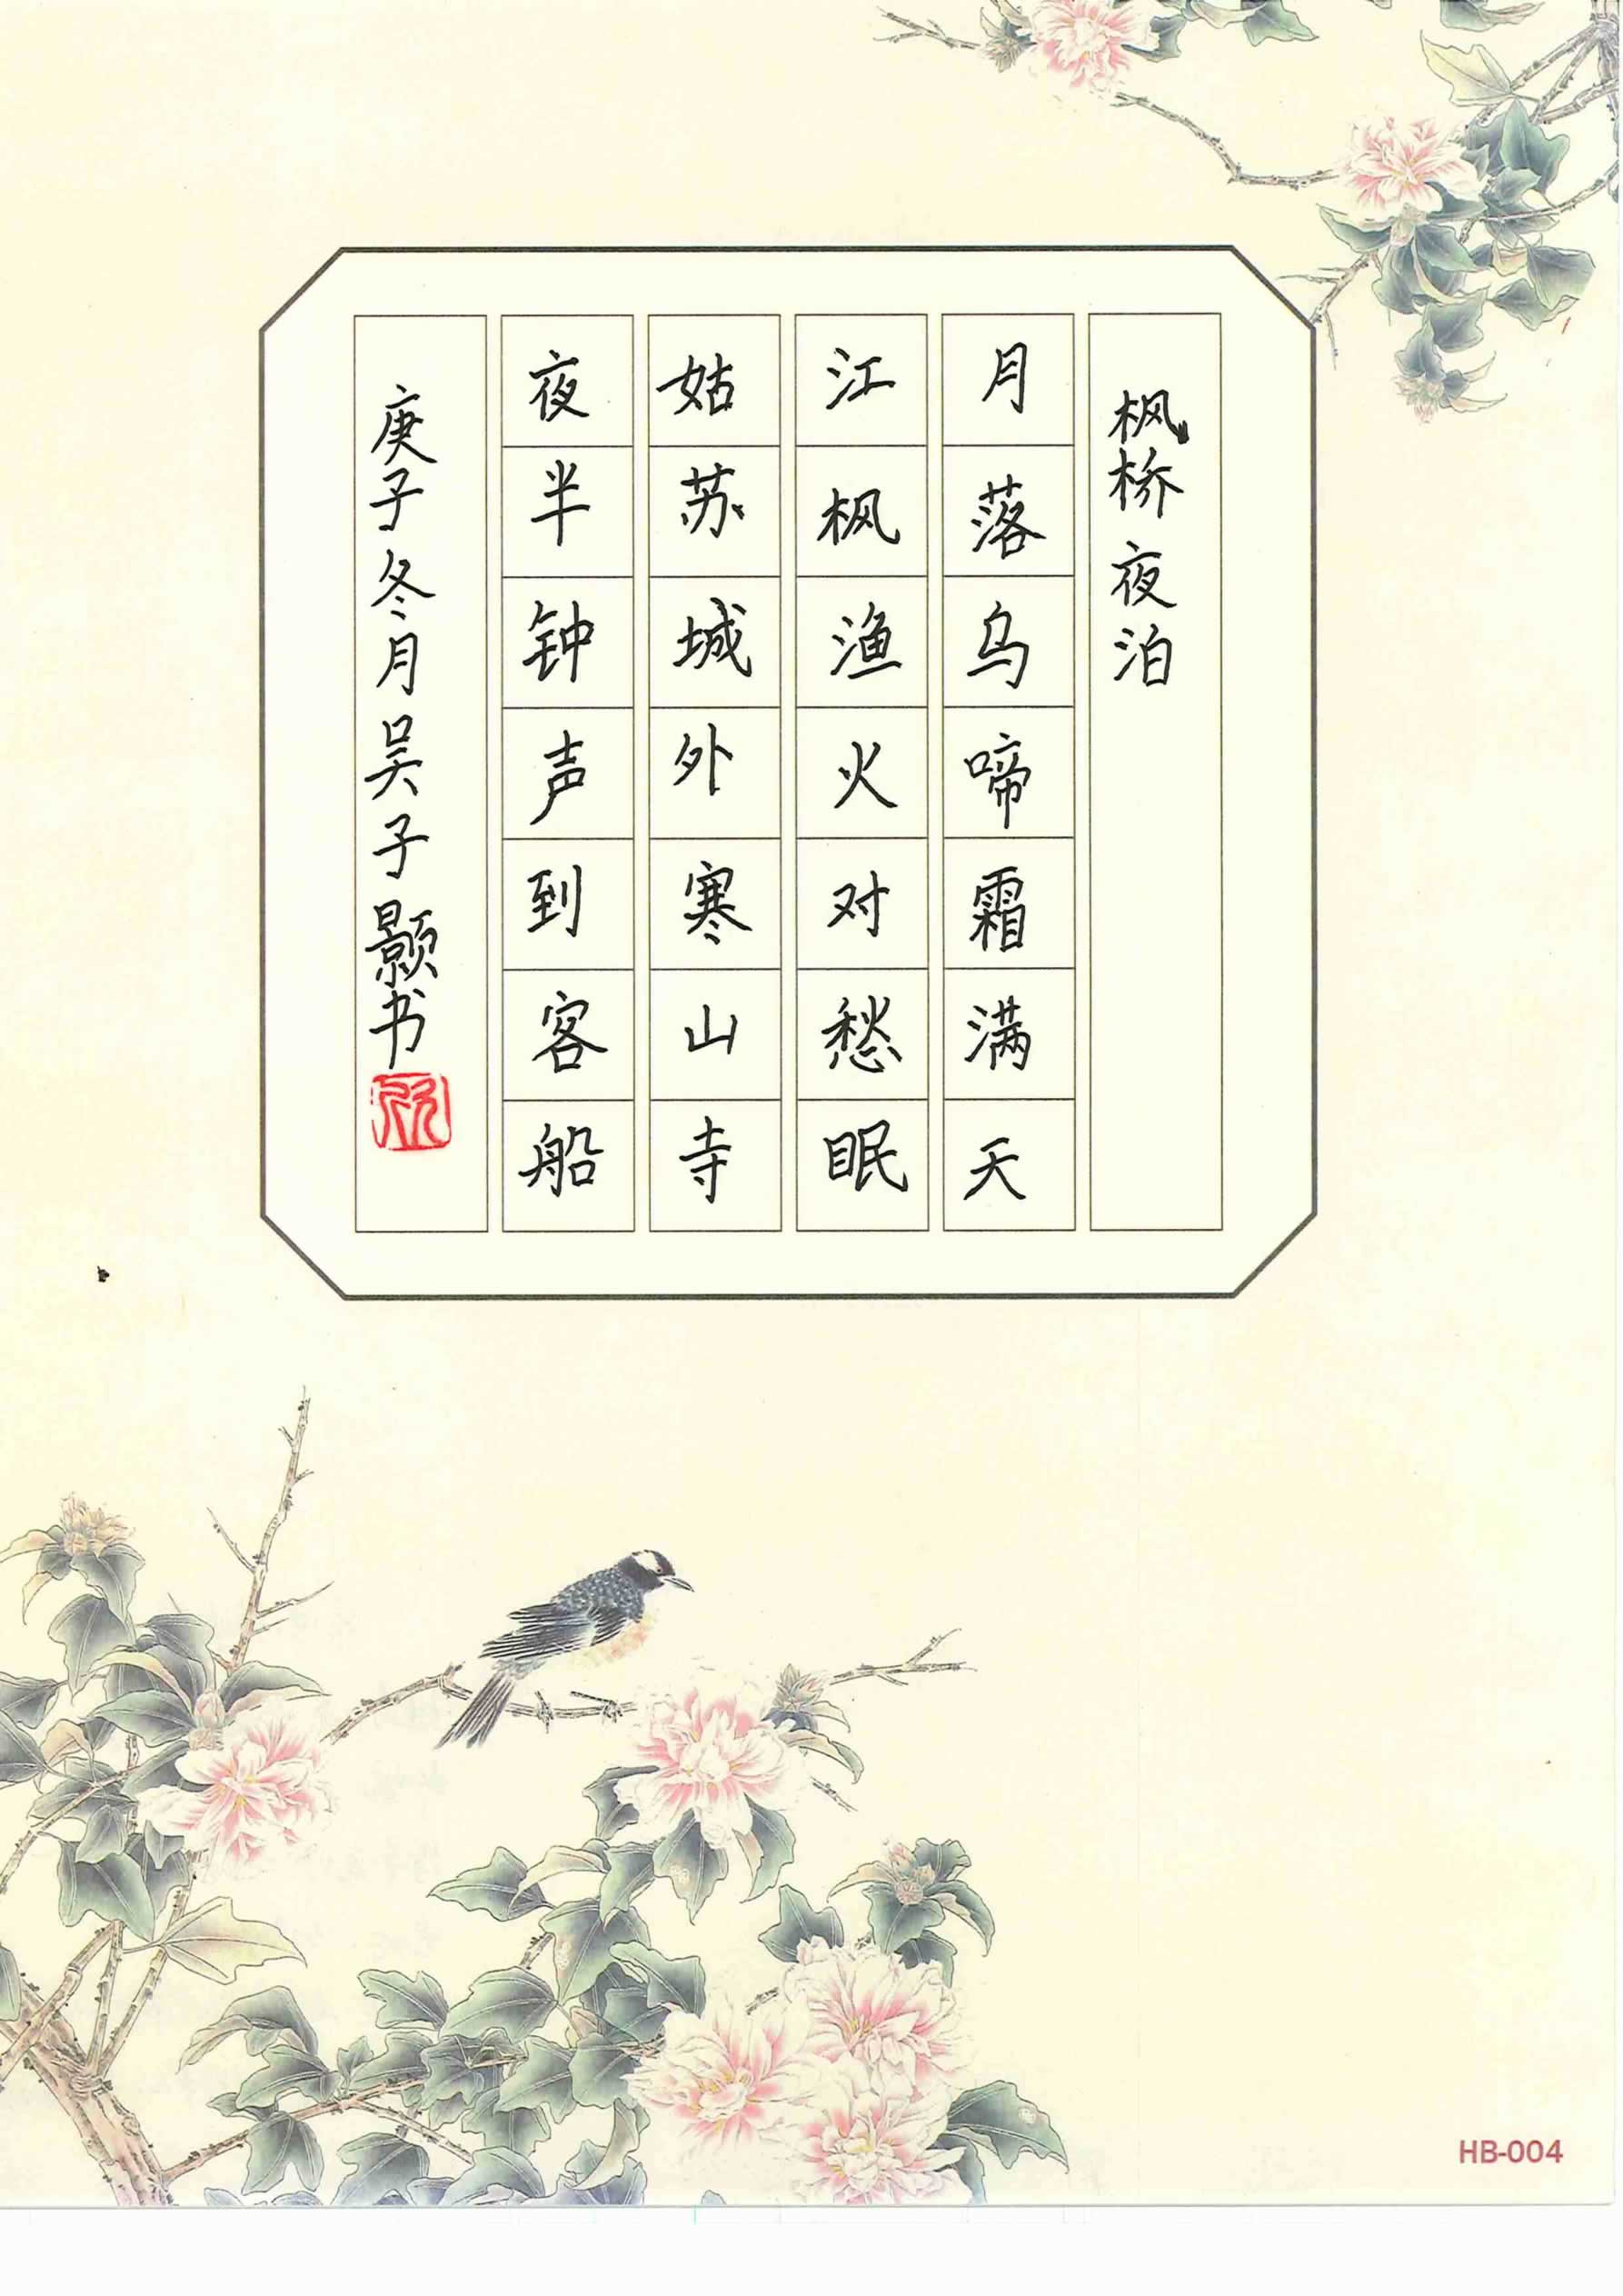 枫桥夜泊
月落乌啼霜满天
江枫渔火对愁眠
姑苏城外寒山寺
夜半钟声到客船
庚子冬月吴子颢书
HB-004